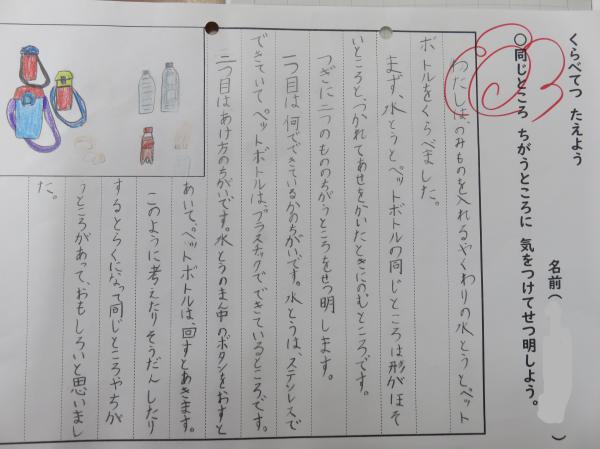 くらべてつたえよう
○同じところ ちがうところに 気をつけてせつ明しよう。
名前(　　　)
わたしは、のみものを入れるやくわりの水とうとペット
ボトルをくらべました。
まず、水とうとペットボトルの同じところは形がほそ
いところと、つかれてあせをかいたときにのむところです。
つぎに二つのもののちがうところをせつ明します。
一つ目は何でできているかのちがいです。水とうは、ステンレスで
できていてペットボトルは、プラスチックでできているところです。
二つ目はあけ方のちがいです。水とうのまん中のボタンをおすと
あいて。ペットボトルは、回すとあきます。
このように考えたりそうだんしたり
するとらくになって同じところやちが
うところがあって、おもしろいと思いまし
た。